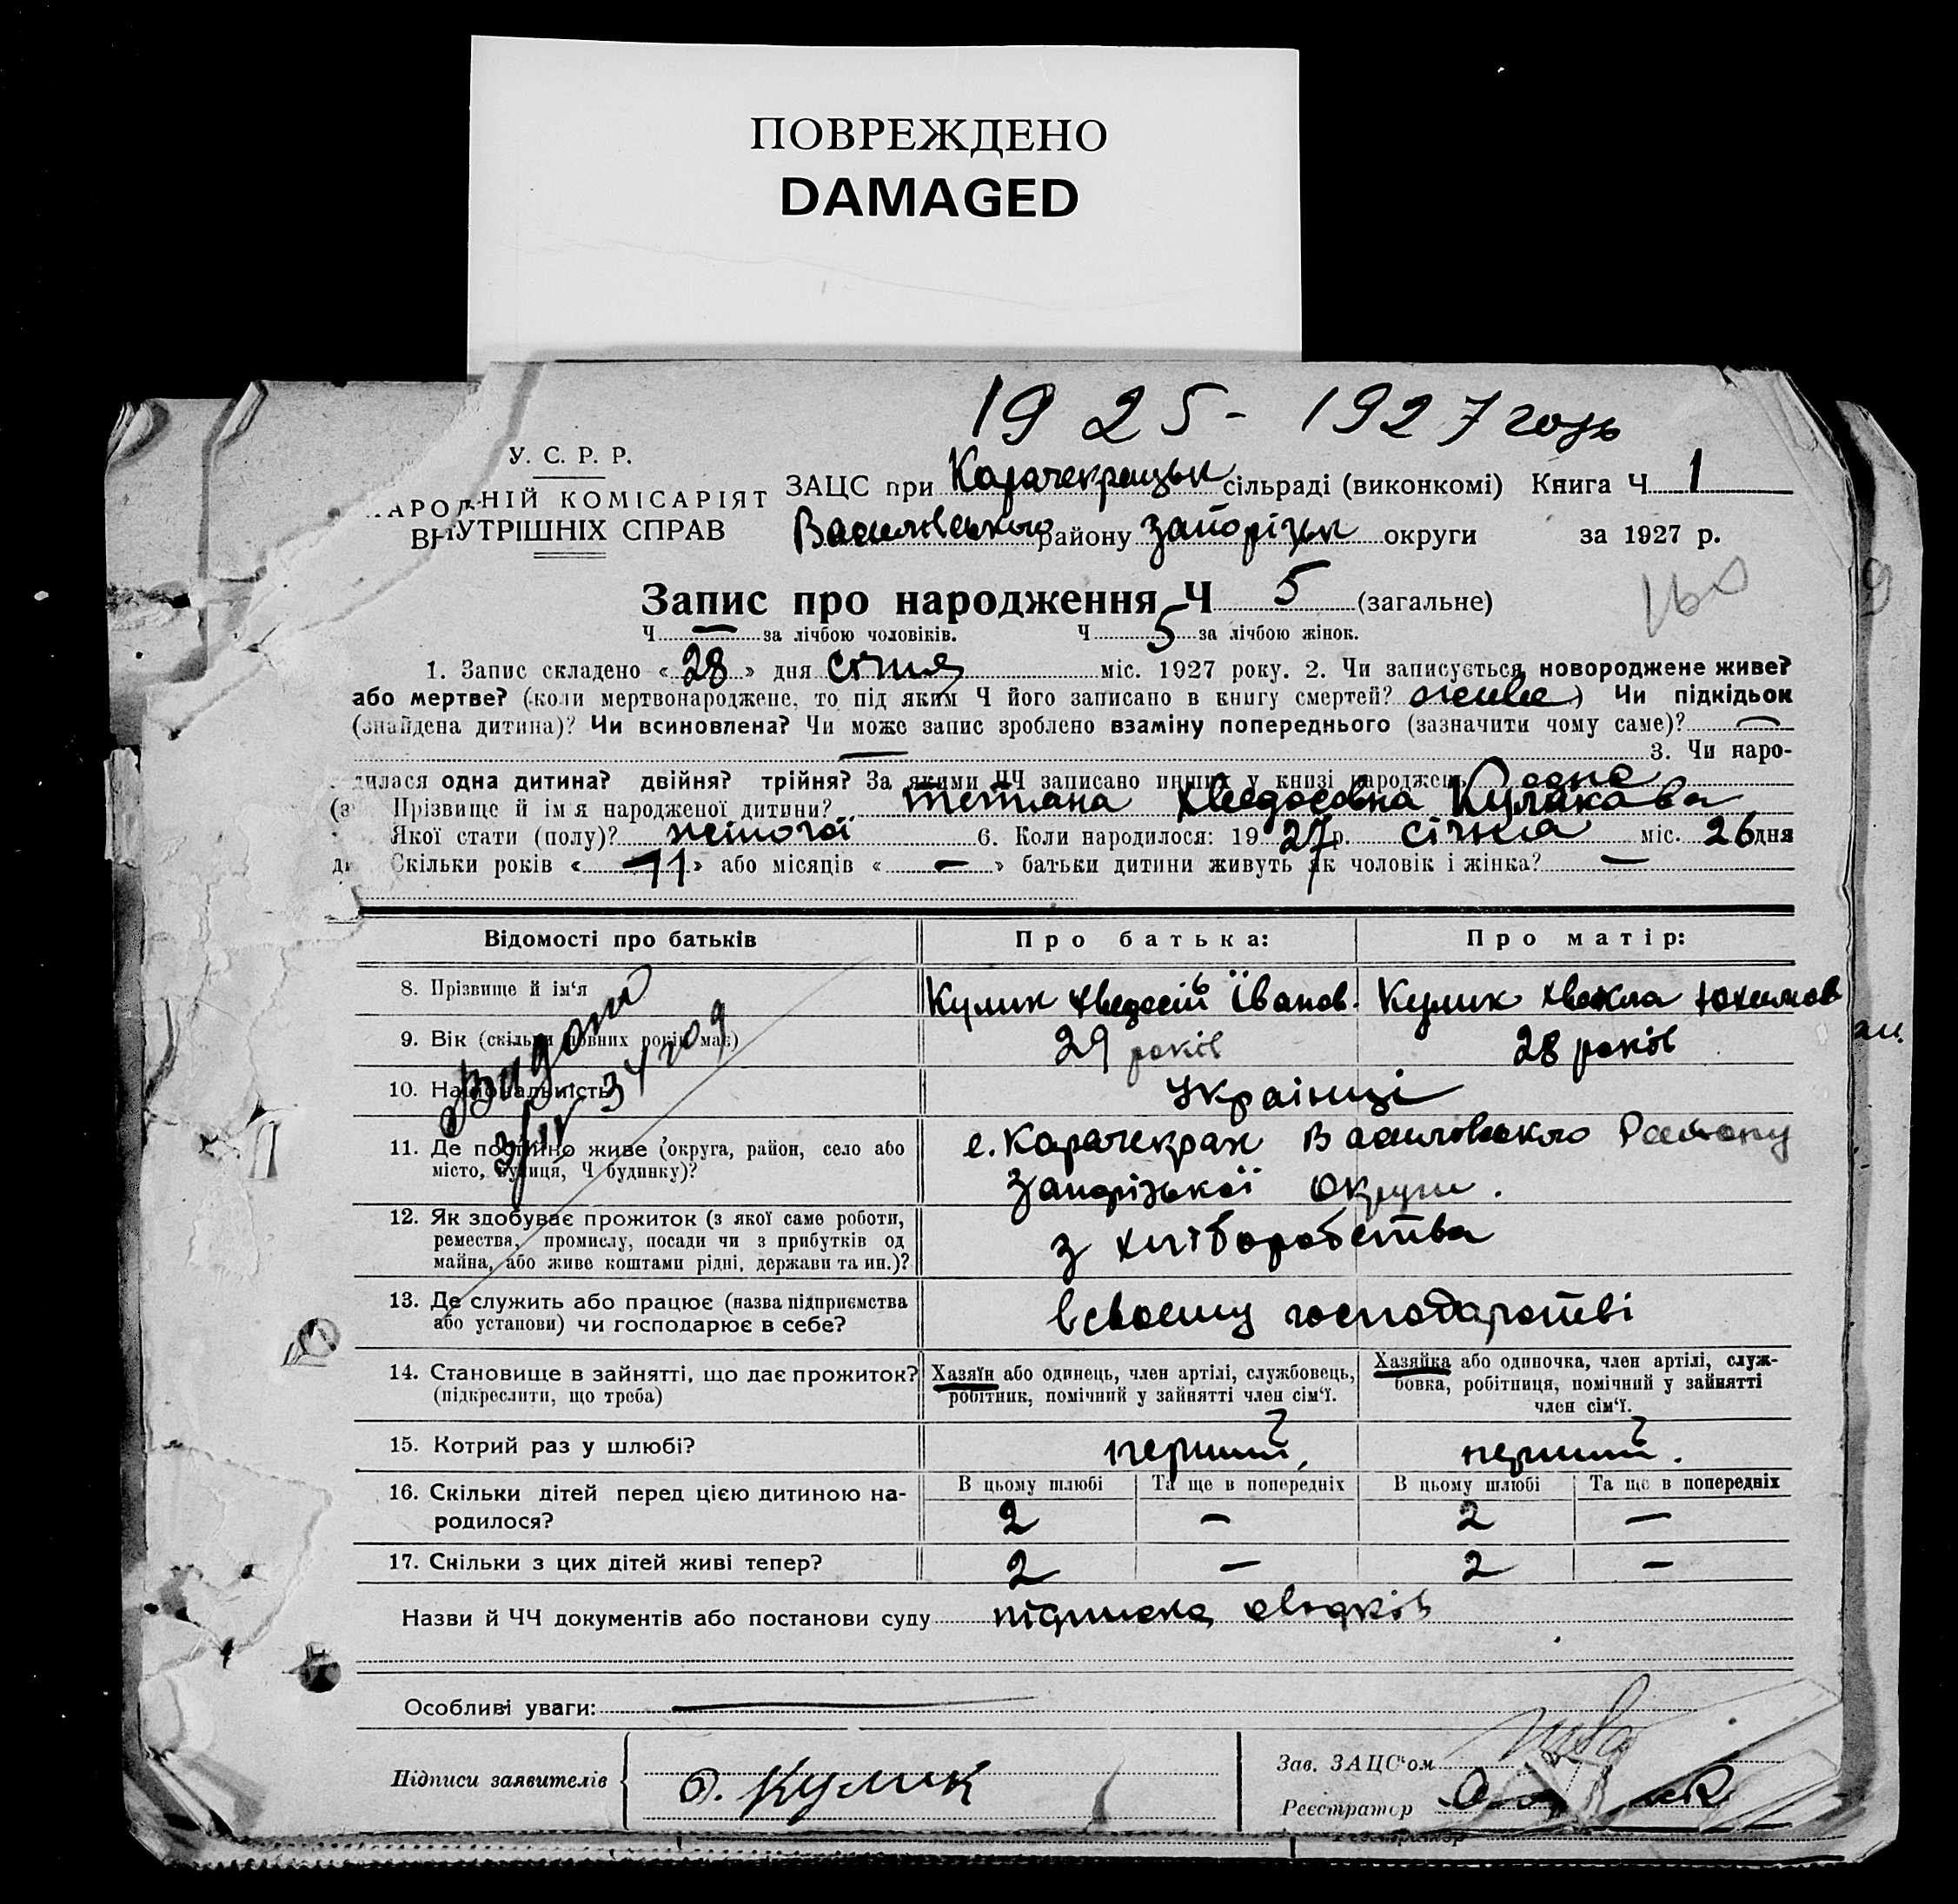 ПОВРЕЖДЕНО
DAMAGED
1925 - 1927 годъ
У. С. Р. Р.
НАРОДНІЙ КОМІСАРІЯТ
ВНУТРІШНІХ СПРАВ
ЗАЦС при Карачекрацьк сільраді (виконкомі) Книга Ч 1
Василівського району Запорізьк округи за 1927 р.
160
9
Запис про народження Ч 5 (загальне)
Ч — за лічбою чоловіків. Ч 5 за лічбою жінок.
1. Запис складено «28» дня січня міс. 1927 року. 2. Чи записується новороджене живе?
або мертве? (коли мертвонароджене, то під яким Ч його записано в книгу смертей? живе) Чи підкідьок
(знайдена дитина)? Чи всиновлена? Чи може запис зроблено взаміну попереднього (зазначити чому саме)? —
— 3. Чи наро-
дилася одна дитина? двійня? трійня? За якими ЧЧ записано инших у книзі народжень одна
Прізвище й ім'я народженої дитини? Тетяна Хведосовна Кулакова
Якої стати (полу)? жіночої 6. Коли народилося: 1927 р. січня міс. 26 дня
Скільки років «11» або місяців «—» батьки дитини живуть як чоловік і жінка? —
Відомості про батьків Про батька: Про матір:
8. Прізвище й ім'я Кулик Хведосій Іванов. Кулик Хвекла Юхимов
9. Вік (скільки повних років має) 29 років 28 років
10. Національність Українці
11. Де постійно живе (округа, район, село або с. Карачекрак Василівсько Району
місто, вулиця, Ч будинку)? Запорізької округи.
12. Як здобуває прожиток (з якої саме роботи,
ремества, промислу, посади чи з прибутків од з хліборобства
майна, або живе коштами рідні, держави та ин.)?
13. Де служить або працює (назва підприємства в своєму господарстві
або установи) чи господарює в себе?
14. Становище в зайнятті, що дає прожиток? Хазяїн або одинець, член артілі, службовець, Хазяйка або одиночка, член артілі, служ-
(підкреслити, що треба) робітник, помічний у зайнятті член сім'ї. бовка, робітниця, помічний у зайнятті
член сім'ї.
15. Котрий раз у шлюбі? перший, перший.
16. Скільки дітей перед цією дитиною на- В цьому шлюбі Та ще в попередніх В цьому шлюбі Та ще в попередніх
родилося? 2 — 2 —
17. Скільки з цих дітей живі тепер? 2 — 2 —
Видони
3/IV 34 год
Назви й ЧЧ документів або постанови суду підписка свідків
Особливі уваги: —
Підписи заявителів Ф. Кулик
Зав. ЗАЦС'ом
Реєстратор